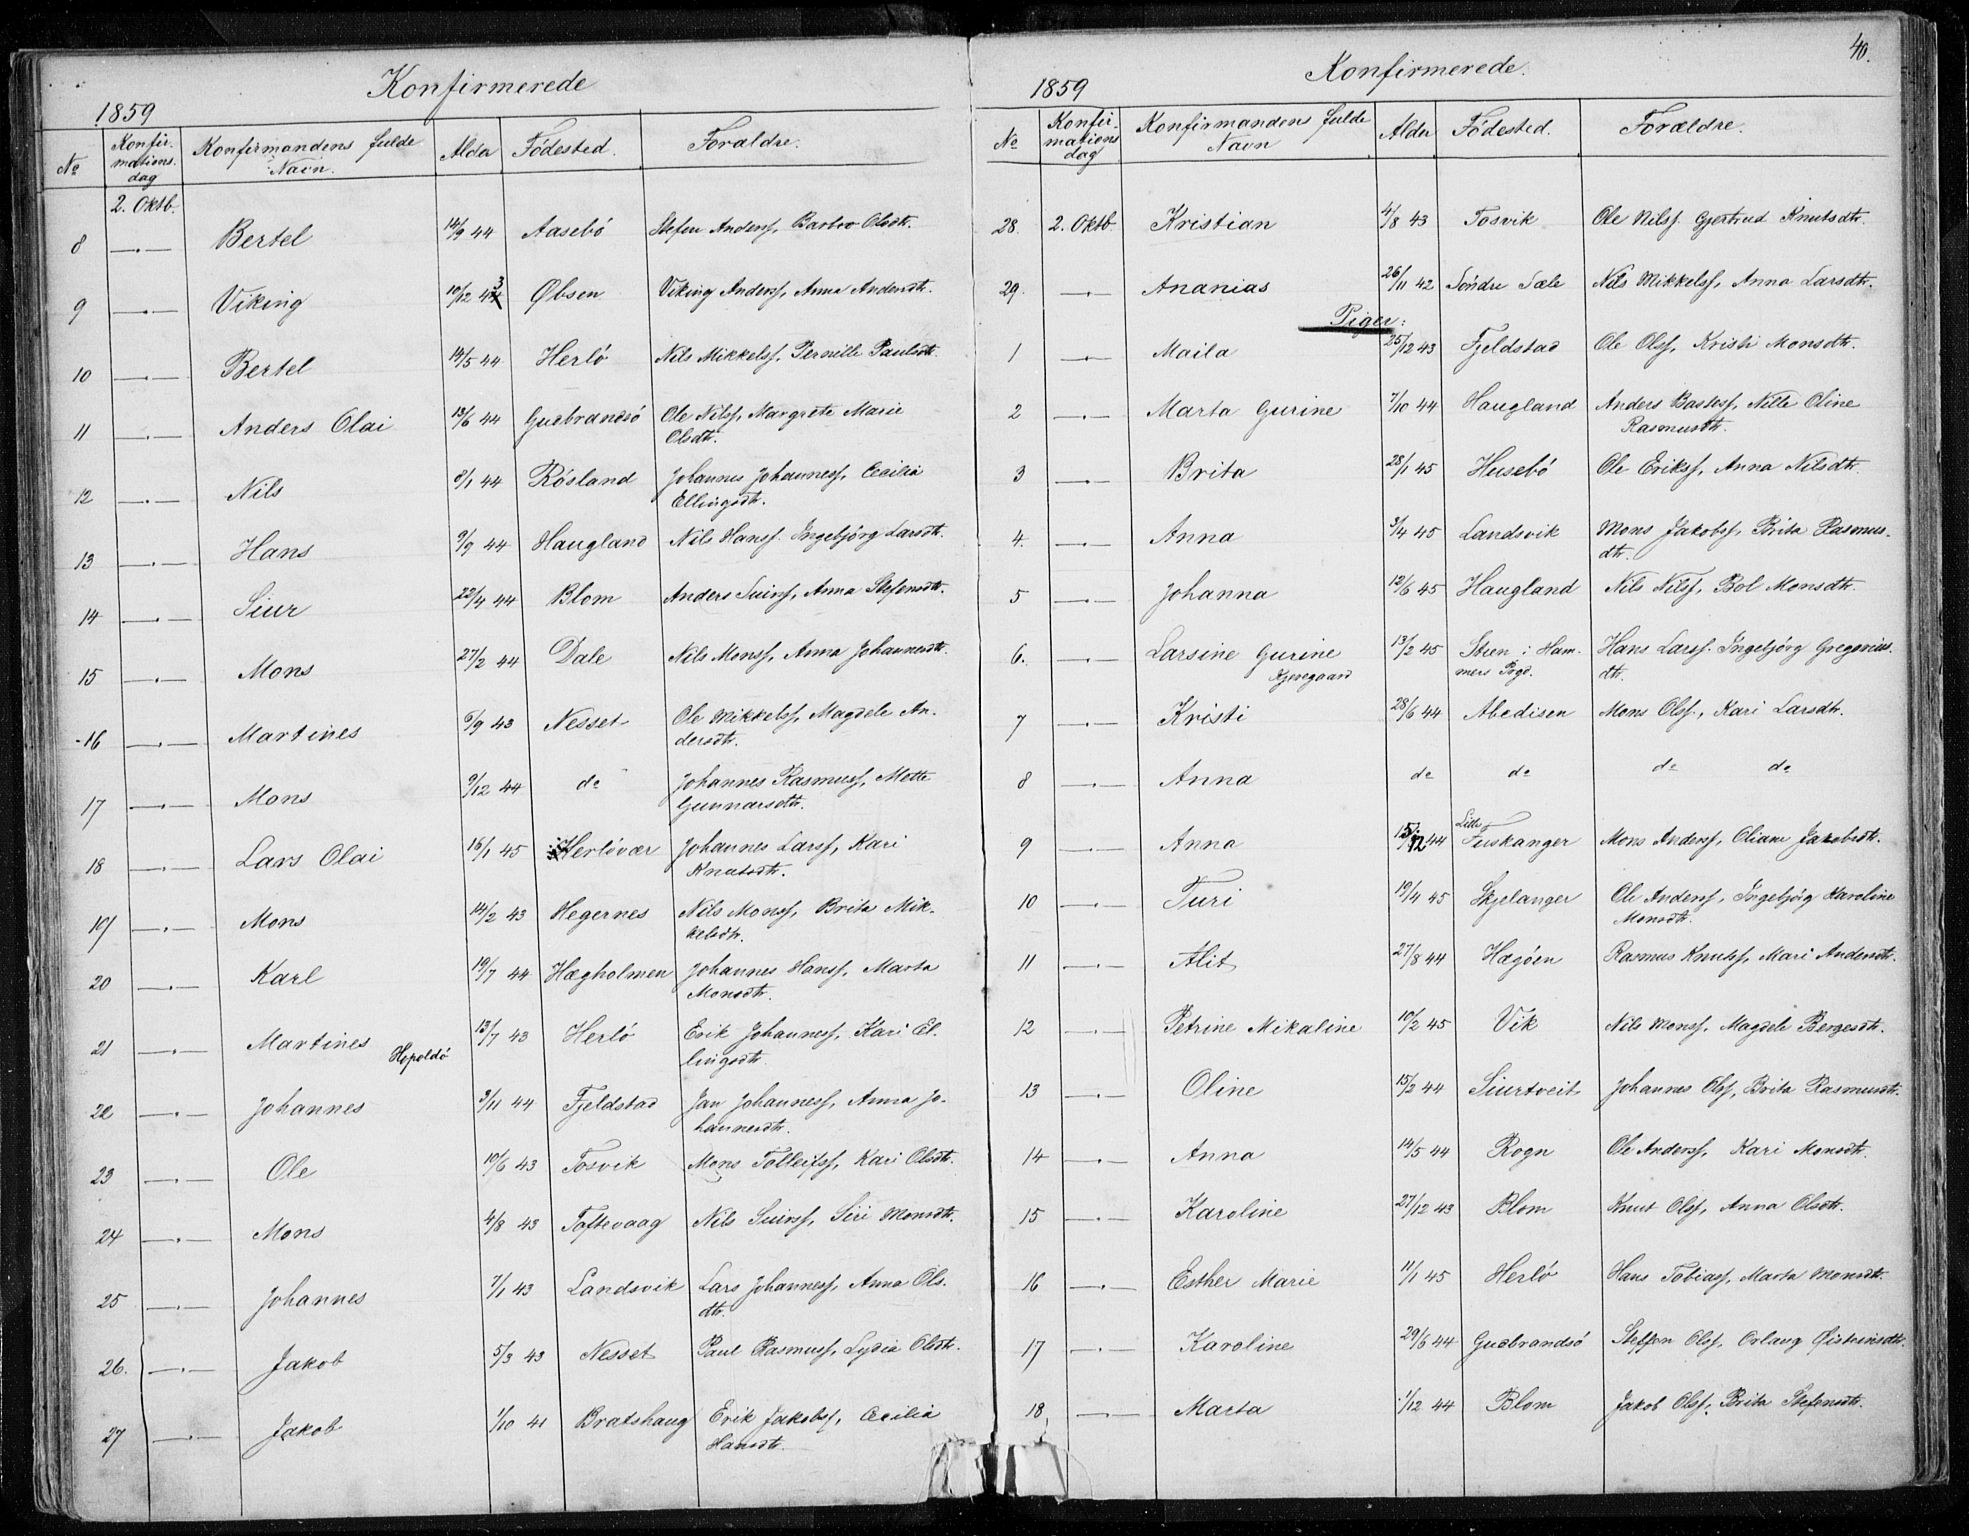 Konfirmerede
1859
No Konfirmationsdag Konfirmandens fulde Navn. Alder Födested. Forældre.
2. Oktb.
8 —„— Bertel 14/9 44 Aasebö Stefen Anders., Barbro Olsdtr.
9 —„— Viking 10/12 43 Øbsen Viking Anders., Anna Andersdtr.
10 —„— Bertel 14/5 44 Herlö Nils Mikkels., Pernille Paulsdtr.
11 —„— Anders Olai 13/6 44 Gudbrandsö Ole Nils., Margrete Marie
Olsdtr.
12 —„— Nils 8/1 44 Rösland Johannes Johannes., Cecilia
Ellingsdtr.
13 —„— Hans 9/9 44 Haugland Nils Hans. Ingebjörg Larsdtr.
14 —„— Siur 22/4 44 Blom Anders Suins., Anna Stefensdtr.
15 —„— Mons 27/2 44 Dale Nils Mons., Anna Johannesdtr.
16 —„— Martines 6/9 43 Nesset Ole Mikkels., Magdele An-
dersdtr.
17 —„— Mons 9/12 44 do Johannes Rasmus., Mette
Gunnarsdtr.
18 —„— Lars Olai 16/1 45 Herlövær Johannes Lars., Kari
Knutsdtr.
19 —„— Mons 14/2 43 Hegernes Nils Mons., Brita Mik-
kelsdtr.
20 —„— Karl 19/7 44 Hægholmen Johannes Hans., Marta
Monsdtr.
21 —„— Martines Hopoldö 13/7 43 Herlö Erik Johannes., Kari El-
lingsdtr.
22 —„— Johannes 3/11 44 Fjeldstad Jan Johannes., Anna Jo-
hannesdtr.
23 —„— Ole 10/6 43 Tosvik Mons Tolleifs., Kari Olsdtr.
24 —„— Mons 4/8 43 Toftevaag Nils Suins., Siri Monsdtr.
25 —„— Johannes 7/1 43 Landsvik Lars Johannes., Anna Ols-
dtr.
26. —„— Jakob 5/3 43 Nesset Paul Rasmus., Lydia Olsdtr.
27 —„— Jakob 1/10 41 Bratshaug Erik Jakobs., Cecilia
Hansdtr.
40.
Konfirmerede.
1859
No Konfirmationsdag Konfirmandens fulde Navn Alder Födested. Forældre.
28. 2. Oktb. Kristian 4/8 43 Tosvik Ole Nils. Gjertrud Knutsdtr.
29. —„— Ananias 26/11 42 Söndre Sæle Nils Mikkels., Anna Larsdtr.
Piger:
1 —„— Maila 25/12 43 Fjeldstad Ole Ols., Kristi Monsdtr.
2 —„— Marta Gurine 7/10 44 Haugland Anders Bastes., Nille Oline
Rasmusdtr.
3 —„— Brita 28/1 45 Husebö Ole Eriks., Anna Nilsdtr.
4. —„— Anna 3/4 45 Landsvik Mons Jakobs., Brita Rasmus-
dtr.
5 —„— Johanna 12/6 45 Haugland Nils Nils., Bol Monsdtr.
6. —„— Larsine Gurine Kjeregaard 13/2 45 Steen i Ham- Hans Lars. Ingebjörg Gregorius-
mers Prgd. dtr.
7 —„— Kristi 28/6 44 Abedisen Mons Ols., Kari Larsdtr.
8 —„— Anna do do do do
9 —„— Anna 15/12 44 Lille Fuskanger Mons Anders., Oliane Jakobsdtr.
10 —„— Turi 19/4 45 Skjelanger Ole Anders., Ingebjörg Karoline
Monsdtr.
11 —„— Alit 27/8 44 Hægöen Rasmus Knuts., Mari Andersdtr.
12 —„— Petrine Mikaline 10/2 45 Vik Nils Mons., Magdele Bergesdtr.
13 —„— Oline 15/2 44 Siurtveit Johannes Ols., Brita Rasmusdtr.
14 —„— Anna 14/5 44 Rogn Ole Anders., Kari Monsdtr.
15 —„— Karoline 27/12 43 Blom Knut Ols., Anna Olsdtr.
16 —„— Esther Marie 11/1 45 Herlö Hans Tobias., Marta Monsdtr.
17 —„— Karoline 29/6 44 Gudbrandsö Steffen Ols., Orlaug Øisteinsdtr.
18 —„— Marta 1/12 44 Blom Jakob Ols., Brita Stefensdtr.